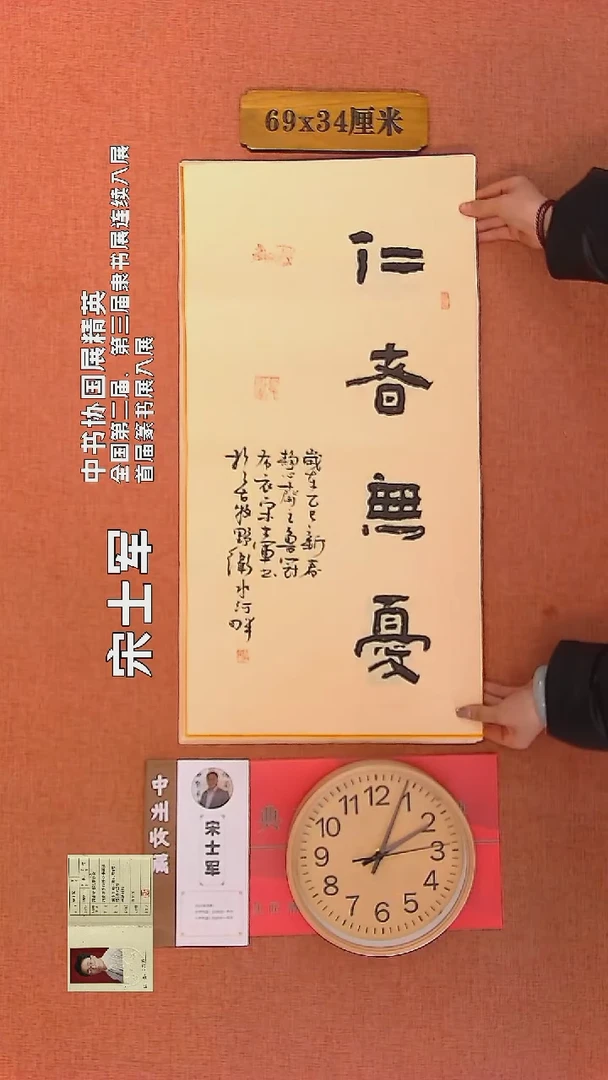 69x34厘米
仁者無憂
歲在乙巳新春
布衣宋士軍書
古牧野衛水河畔
中书协国展精英
全国第二届、第三届隶书展连续入展
首届篆书展入展
宋士军
宋士军
12
1
2
3
4
5
6
7
8
9
10
11